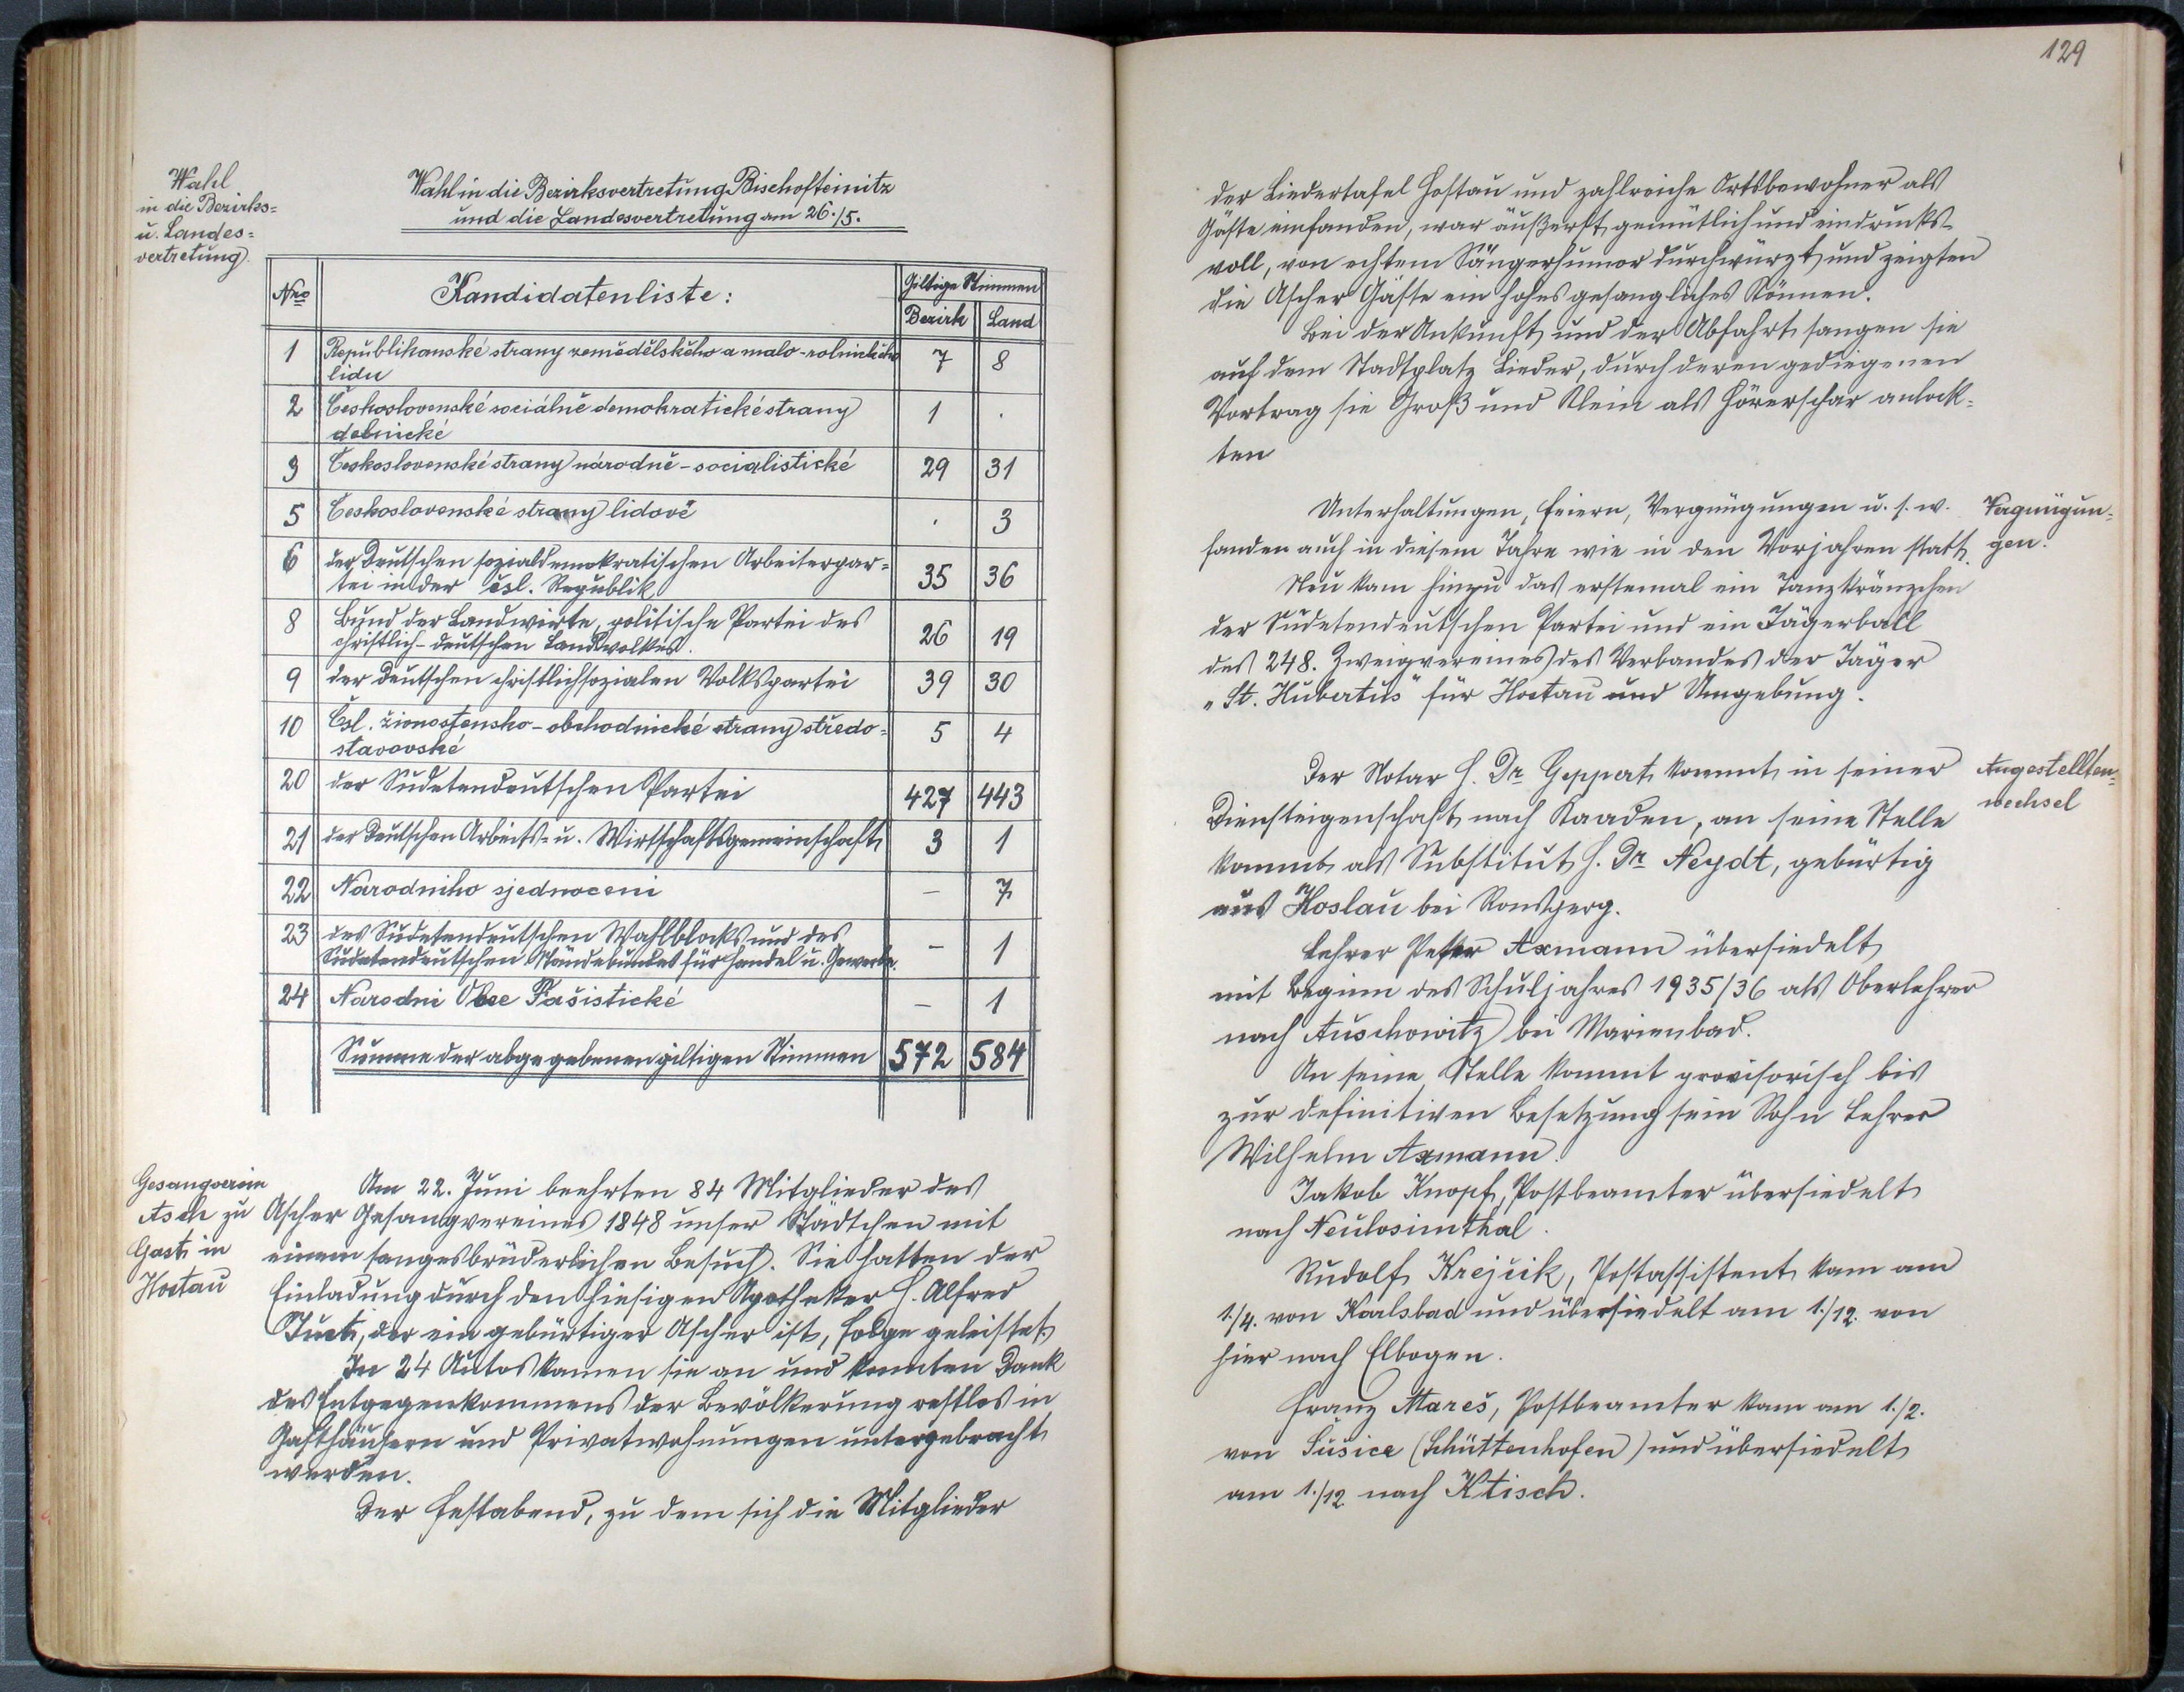 129
Wahl
in die Bezirks=
u. Landes=
vertretung.
Wahl in die Bezirksvertretung Bischofteinitz
und die Landesvertretung am 26./5.
Nro Kandidatenliste: Giltige Stimmen
Bezirk Land
1 Republikanské strany zemědělského a malo-rolnického 7 8
lidu
2 Československé sociálně demokratické strany 1 .
dělnické
3 Československé strany národně-socialistické 29 31
5 Československé strany lidově . 3
6 der Deutschen sozialdemokratischen Arbeiterpar= 35 36
tei in der čsl. Republik
8 Bund der Landwirte, politische Partei des 26 19
christlich-deutschen Landvolkes.
9 der Deutschen christlichsozialen Volkspartei 39 30
10 Čsl. živnostensko-obchodnické strany středo= 5 4
stavovské
20 der Sudetendeutschen Partei 427 443
21 der Deutschen Arbeits- u. Wirtschaftsgemeinschaft 3 1
22 Narodniho sjednoceni – 7
23 des Sudetendeutschen Wahlblocks und des – 1
Sudetendeutschen Ständebundes für Handel u. Gewerbe.
24 Narodni Obce Fašistické – 1
Summe der abgegebenen giltigen Stimmen 572 584
Gesangverein
Asch zu
Gast in
Hostau
Am 22. Juni beehrten 84 Mitglieder des
Ascher Gesangvereines 1848 unser Städtchen mit
einem sangesbrüderlichen Besuch. Sie hatten der
Einladung durch den hiesigen Apotheker H. Alfred
Just, der ein gebürtiger Ascher ist, Folge geleistet.
In 24 Autos kamen sie an und konnten Dank
des Entgegenkommens der Bevölkerung restlos in
Gasthäusern und Privatwohnungen untergebracht
werden.
Der Festabend, zu dem sich die Mitglieder
der Liedertafel Hostau und zahlreiche Ortsbewohner als
Gäste einfanden, war äußerst gemütlich und eindrucks-
voll, von echtem Sängerhumor durchwürzt und zeigten
die Ascher Gäste ein hohes gesangliches Können.
Bei der Ankunft und der Abfahrt sangen sie
auf dem Stadtplatz Lieder, durch deren gediegenen
Vortrag sie Groß und Klein als Hörerschar anlock=
ten
Unterhaltungen, Feiern, Vergnügungen u. s. w.
fanden auch in diesem Jahre wie in den Vorjahren statt.
Vergnügun=
gen.
Neu kam hinzu das erstemal ein Tanzkränzchen
der Sudetendeutschen Partei und ein Jägerball
des 248. Zweigvereines des Verbandes der Jäger
„St. Hubertus“ für Hostau und Umgebung.
Der Notar H. Dr Geppert kommt in seiner
Diensteigenschaft nach Kaaden, an seine Stelle
kommt als Substitut H. Dr Neydt, gebürtig
aus Hoslau bei Ronsperg.
Angestellten=
wechsel
Lehrer Peter Axmann übersiedelt
mit Beginn des Schuljahres 1935/36 als Oberlehrer
nach Auschowitz bei Marienbad.
An seine Stelle kommt provisorisch bis
zur definitiven Besetzung sein Sohn Lehrer
Wilhelm Axmann.
Jakob Knopf, Postbeamter übersiedelt
nach Neulosimthal.
Rudolf Krejčik, Postassistent kam am
1./4. von Karlsbad und übersiedelt am 1./12. von
hier nach Elbogen.
Franz Mareš, Postbeamter kam am 1./2.
von Sušice (Schüttenhofen) und übersiedelt
am 1./12. nach Ktisch.